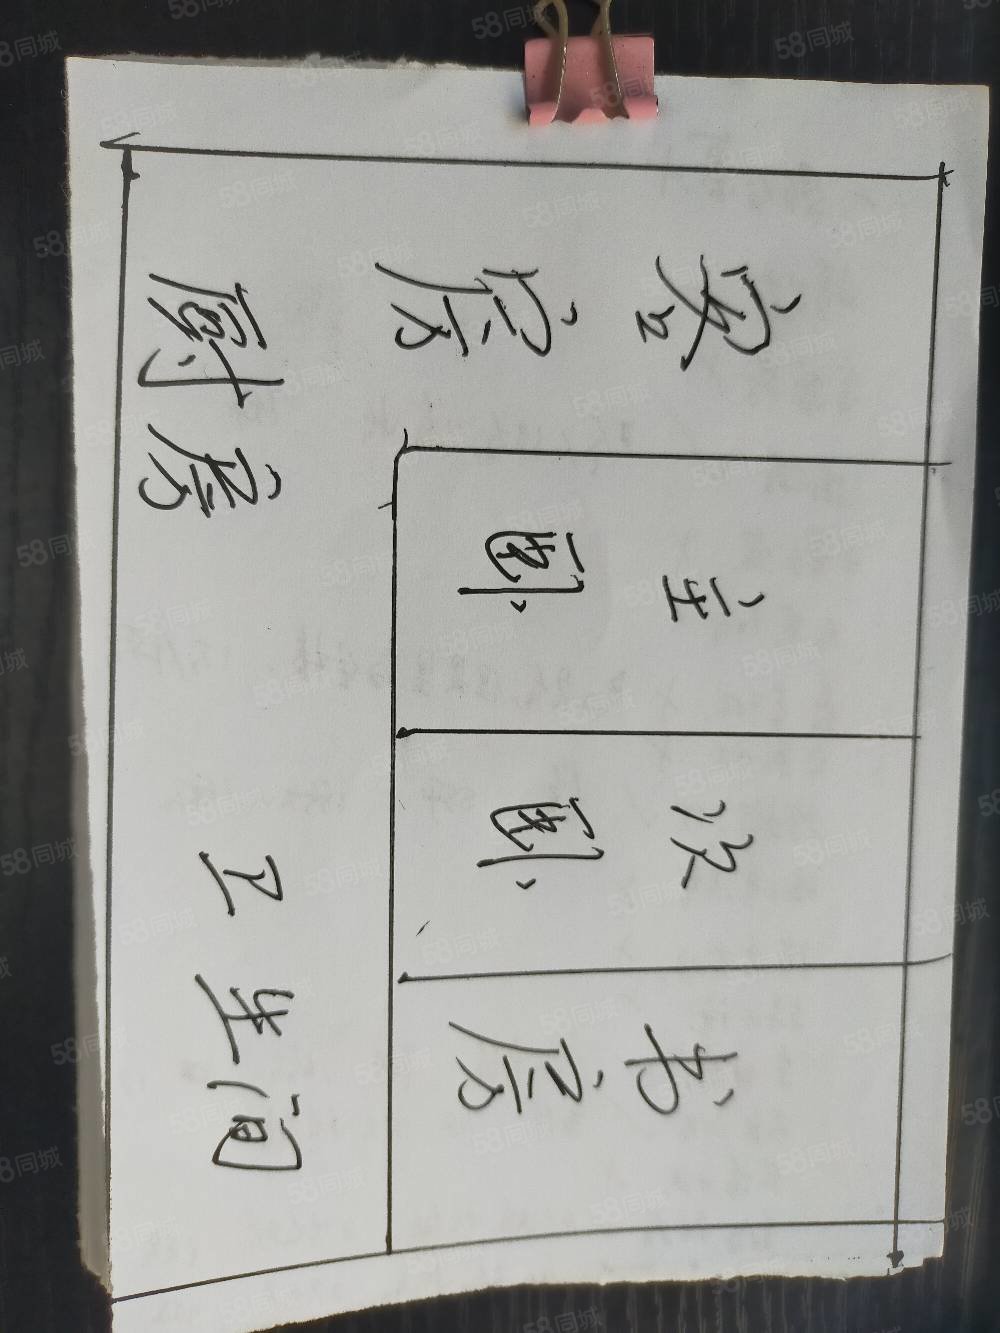 客房
主卧
次卧
书房
厨房
卫生间
58同城